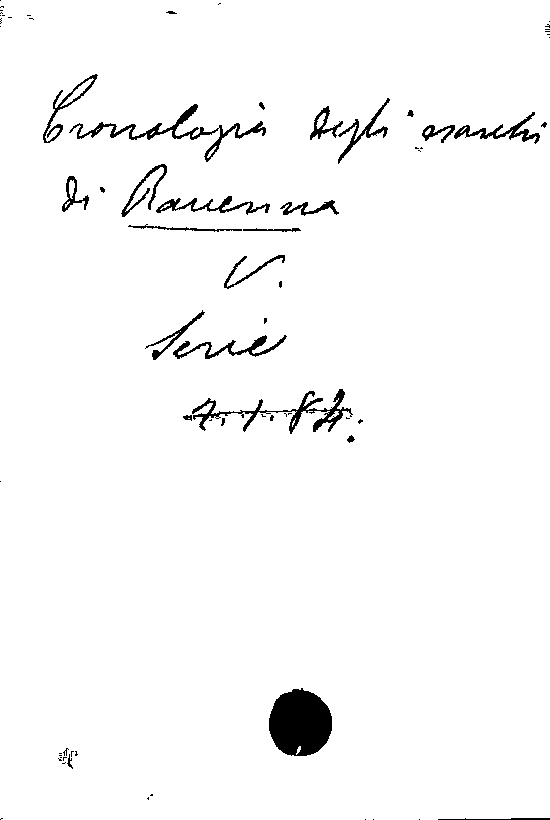 Cronologia degli esarchi
di Ravenna
V.
Serie
4.1.84.